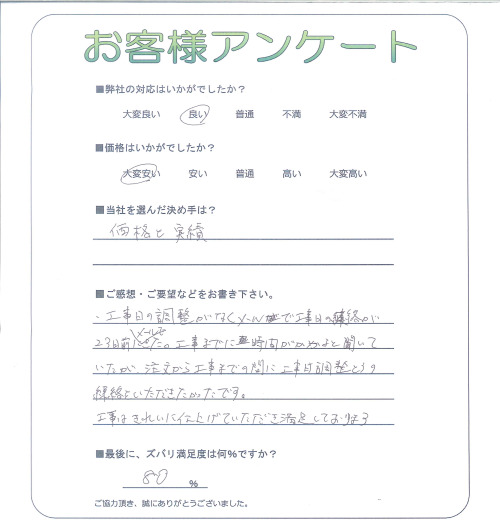 お客様アンケート
■弊社の対応はいかがでしたか？
大変良い 良い 普通 不満 大変不満
■価格はいかがでしたか？
大変安い 安い 普通 高い 大変高い
■当社を選んだ決め手は？
価格と実績
■ご感想・ご要望などをお書き下さい。
・工事日の調整がなくメールで工事日の連絡が
2、3日前にメールで た。工事までに時間がかかると聞いて
いたが、注文から工事までの間に工事日調整とうの
連絡をいただきたかったです。
工事はきれいに仕上げていただき満足しております
■最後に、ズバリ満足度は何％ですか？
80 ％
ご協力頂き、誠にありがとうございました。